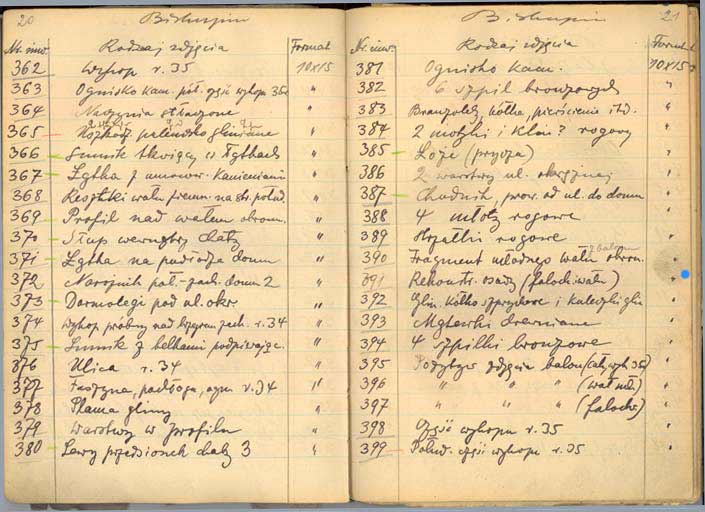 20 Biskupin
Nr. inw. Rodzaj zdjęcia Format
362 Wykop r. 35 10x15
363 Ognisko kam. poł. część wykopu 35r "
364 Naczynia stłuczone "
365 gliniane "
366 Sumik tkwiący w łątkach "
367 Łątka z umocow. kamieniami "
368 Resztki wału na str. połud. "
369 Profil nad wałem obron. "
370 Słup wewnątrz chaty "
371 Łątka na domu "
372 Narożnik poł.-zach. domu 2 "
373 pod ul. okr. "
374 Wykop próbny nad zach. r. 34 "
375 Sumik z belkami "
376 Ulica r. 34 "
377 Faszyna, podłoga, r. 34 "
378 Plama gliny "
379 Warstwy w profilu "
380 Lewy przedsionek chaty 3 "
Biskupin 21
Nr. inw. Rodzaj zdjęcia Format
381 Ognisko kam. 10x15
382 6 szpil bronzowych "
383 Bransolety, kółka, pierścienie itd. "
384 2 motyki i ? rogowy "
385 Łoże (prycza) "
386 2 warstwy ul. okrężnej "
387 Chodnik, prow. od ul. do domu "
388 4 młoty rogowe "
389 rogowe "
390 Fragment młodszego wału obron. z balonu "
391 Rekonstr. osady (faloch. wału) "
392 Glin. kółko szprychowe i gli "
393 Mątewki drewniane "
394 4 szpilki bronzowe "
395 Pozytyw zdjęcia balon. (cały wyk. 35r) "
396 " " " (wał mł.) "
397 " " " (faloch.) "
398 Część wykopu r. 35 "
399 Połud. część wykopu r. 35 "